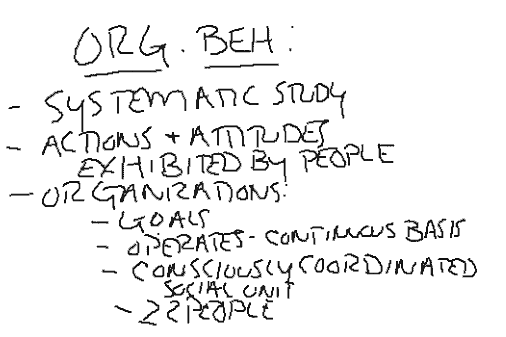 ORG. BEH:
- SYSTEMATIC STUDY
- ACTIONS + ATTITUDES
EXHIBITED BY PEOPLE
- ORGANIZATIONS:
- GOALS
- OPERATES - CONTINUOUS BASIS
- CONSCIOUSLY COORDINATED
SOCIAL UNIT
- 2 PEOPLE